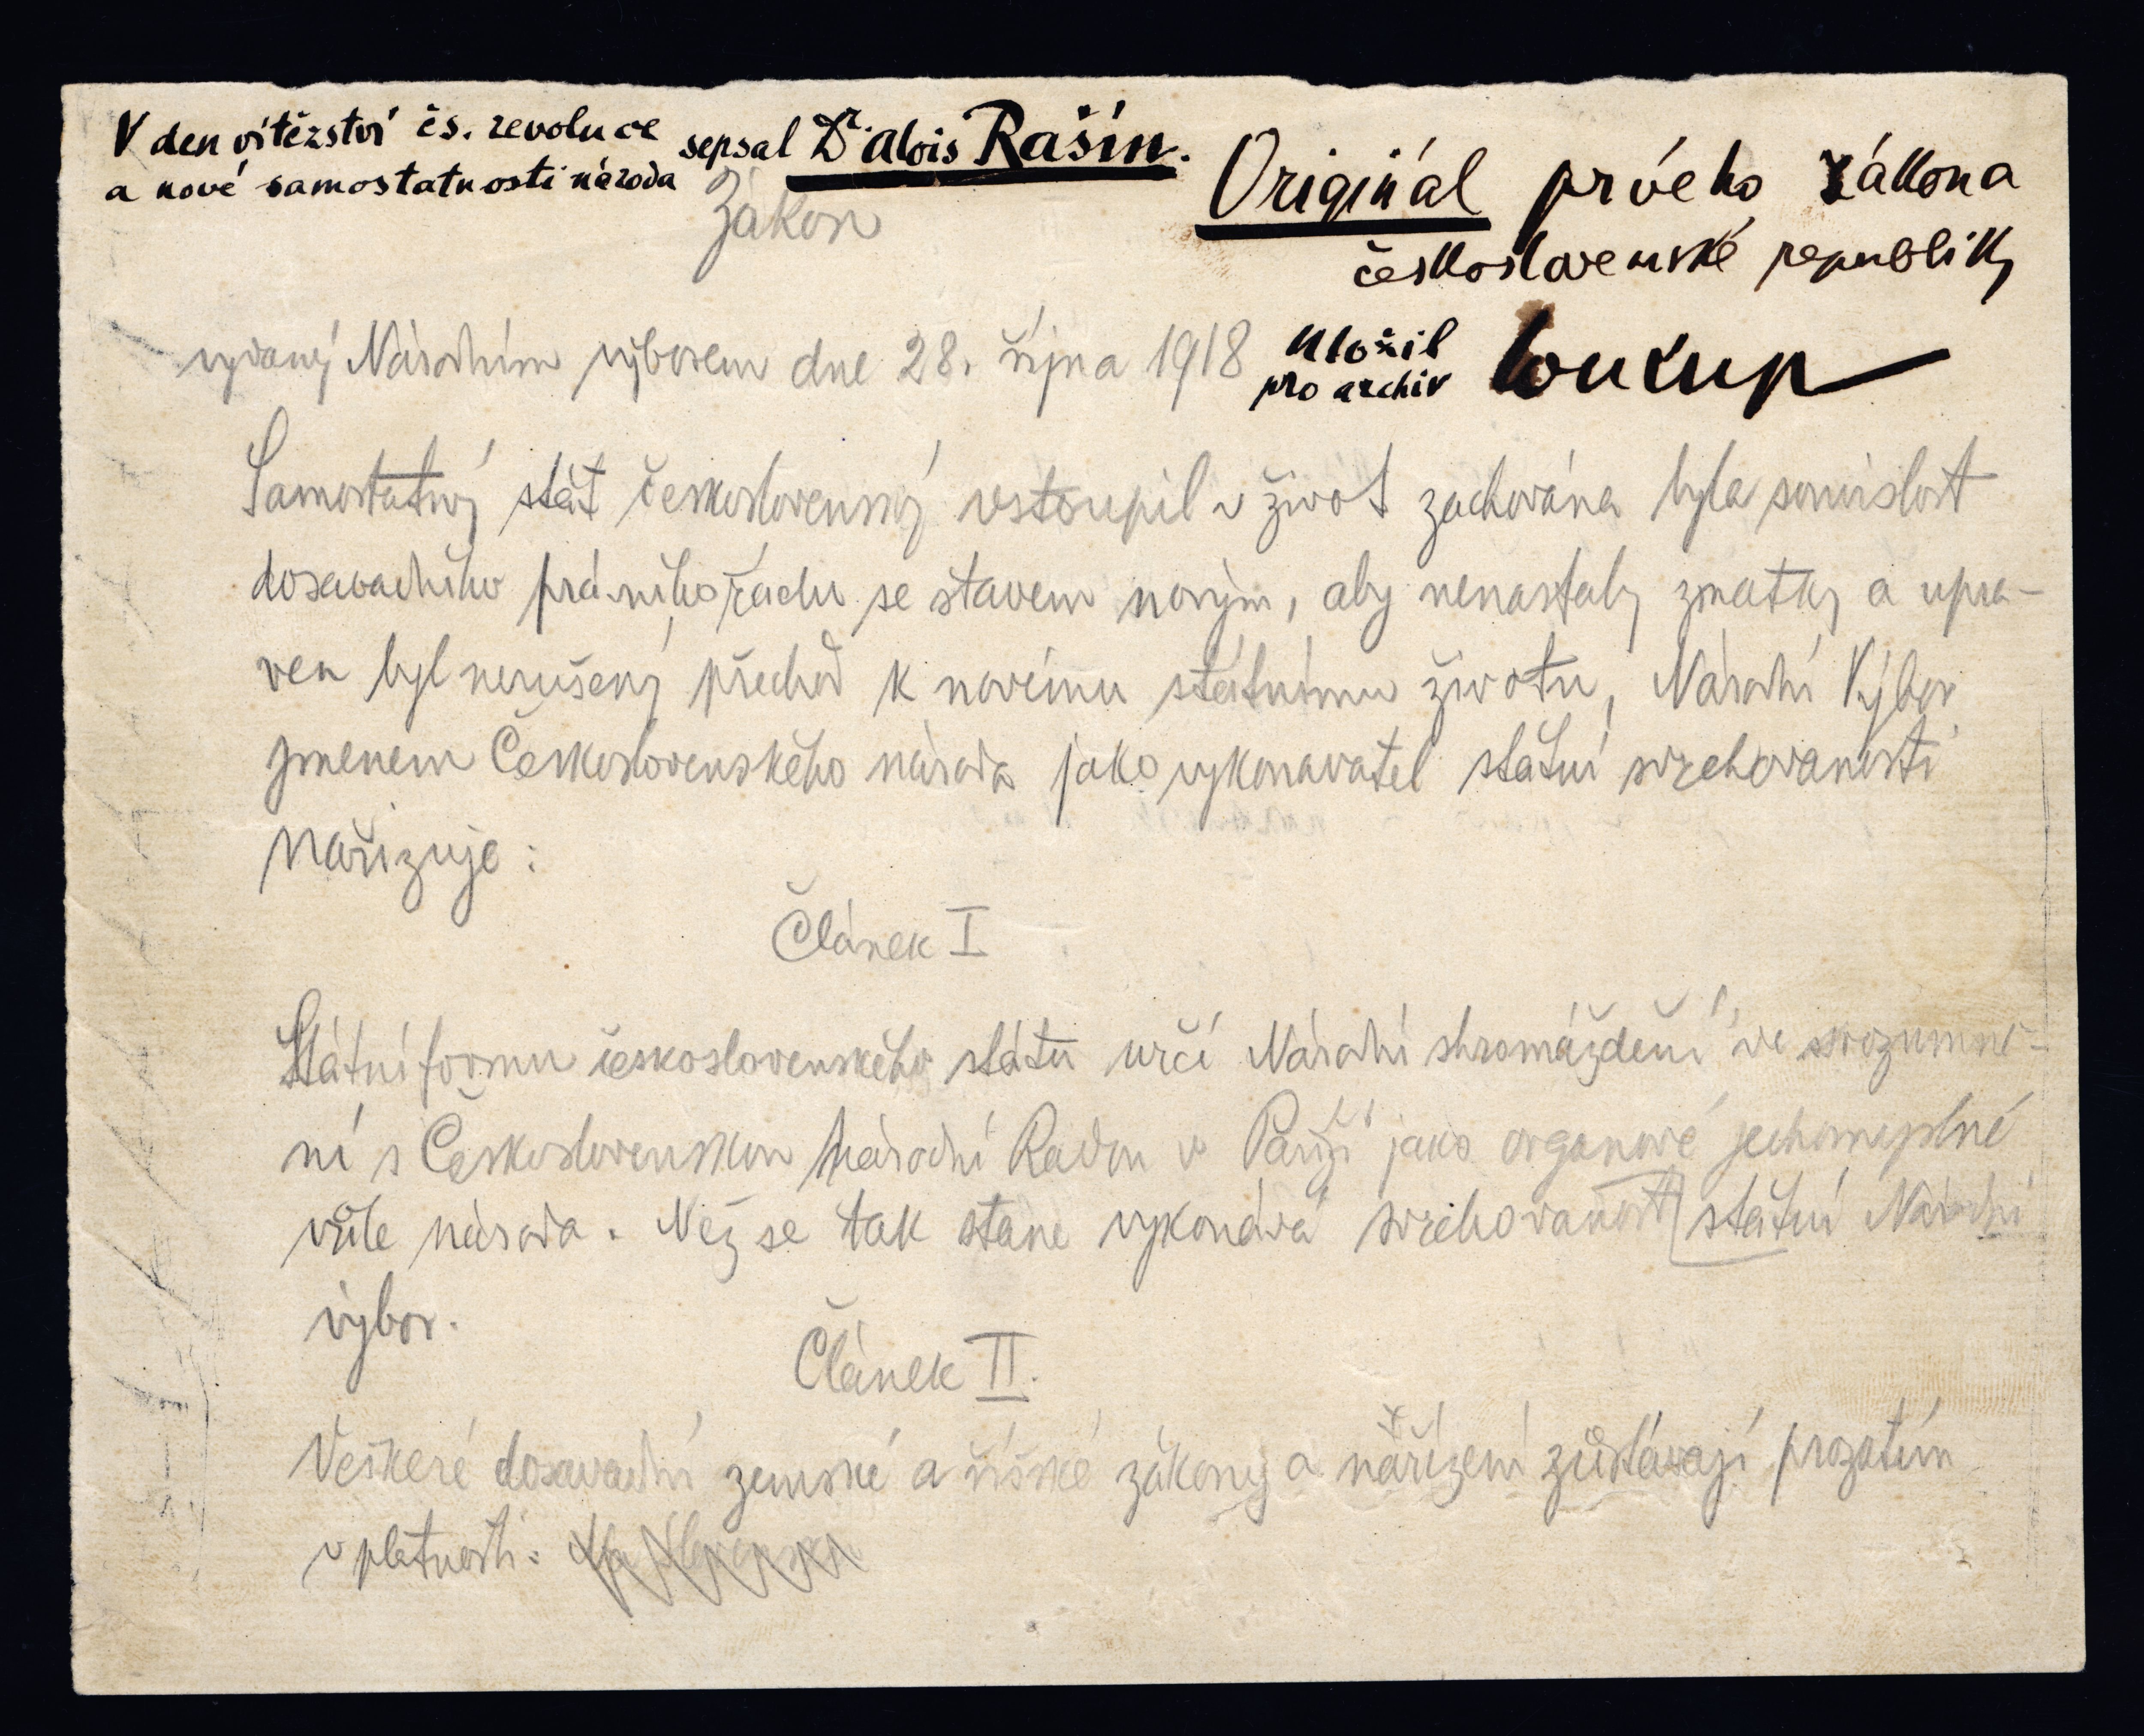 V den vítězství čs. revoluce
a nové samostatnosti národa
sepsal Dr. Alois Rašín.
Originál prvého zákona
československé republiky
uložil
pro archiv
Soukup
Zákon
vydaný Národním výborem dne 28. října 1918
Samostatný stát československý vstoupil v život zachována byla souvislost
dosavadního právního řádu se stavem novým, aby nenastaly zmatky a upra-
ven byl nerušený přechod k novému státnímu životu, Národní Výbor
jmenem Československého národa jako vykonavatel státní svrchovanosti
nařizuje:
Článek I
Státní formu československého státu určí Národní shromáždění ve srozumně-
ní s Československou Národní Radou v Paříži jako organové jednomyslné
vůle národa. Než se tak stane vykonává svrchovanost státní Národní
výbor.
Článek II.
Veškeré dosavadní zemské a říšské zákony a nařízení zůstávají prozatím
v platnosti.